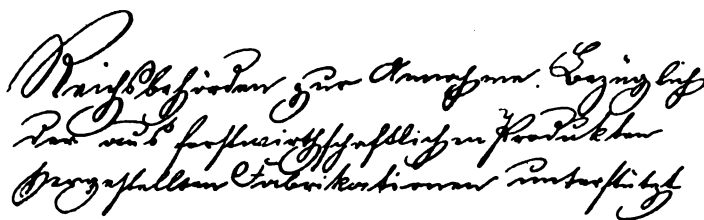 Reichsbehörden zur Annahme. Bezüglich
der aus forstwirthschaftlichen Produkten
hergestellten Fabrikationen unterstützt